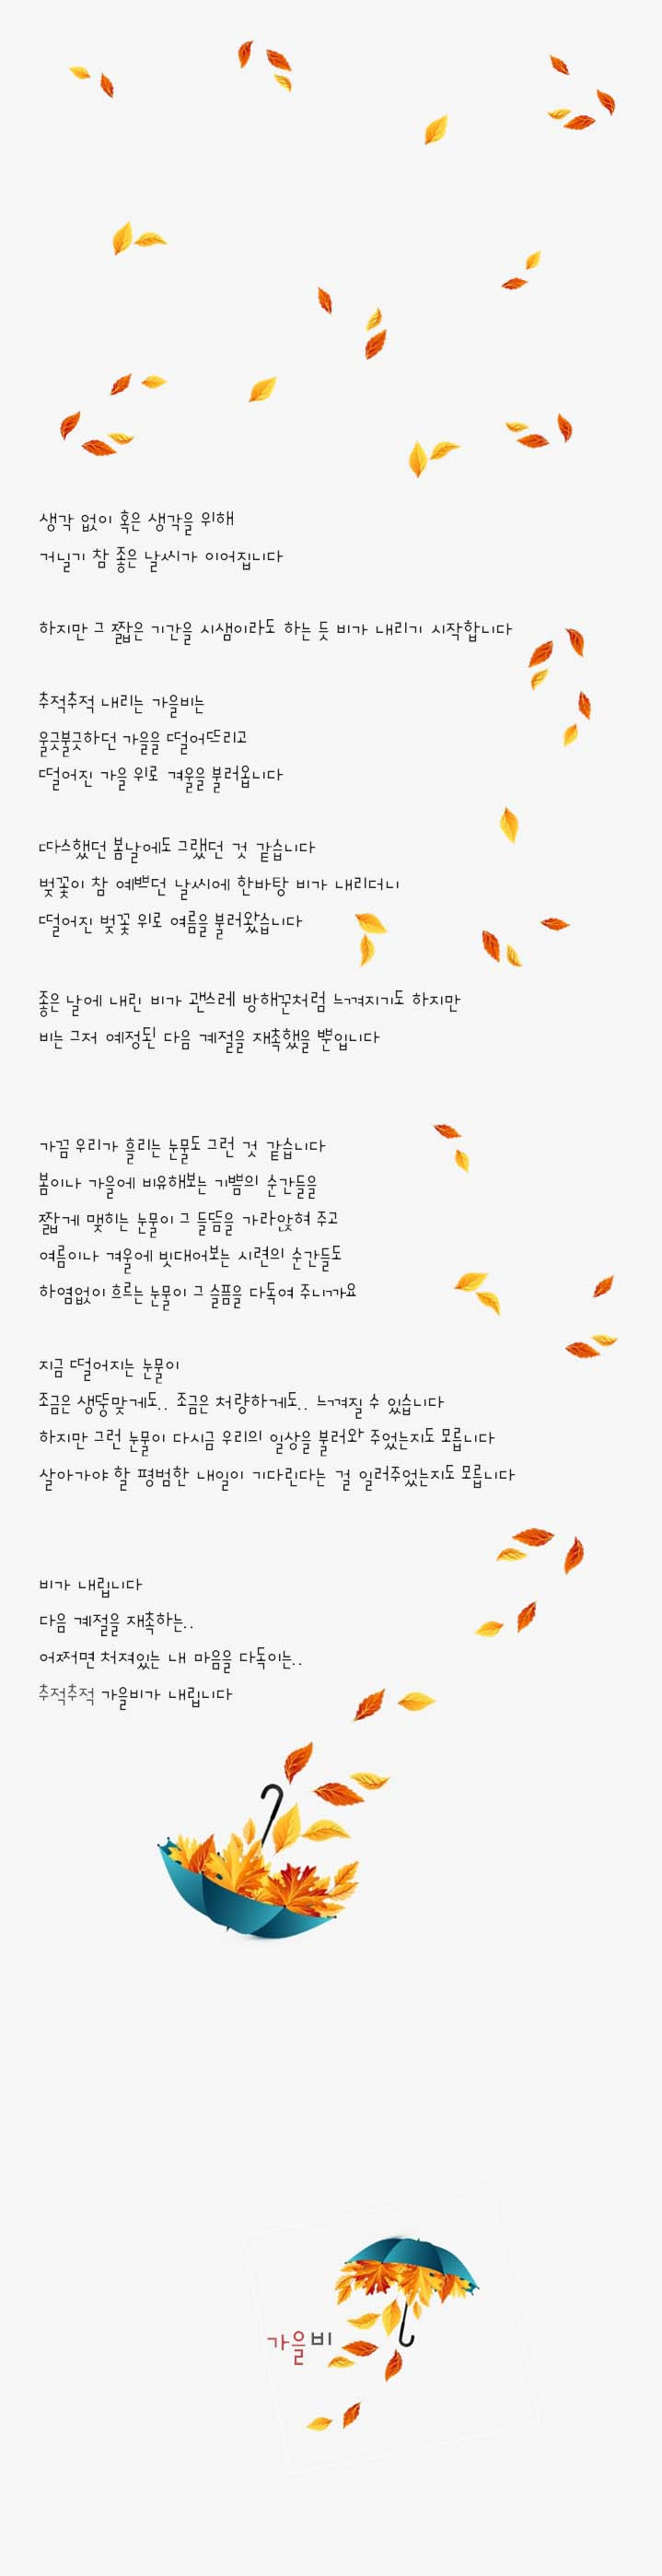 생각 없이 혹은 생각을 위해
거닐기 참 좋은 날씨가 이어집니다
하지만 그 짧은 기간을 시샘이라도 하는 듯 비가 내리기 시작합니다
추적추적 내리는 가을비는
울긋불긋하던 가을을 떨어뜨리고
떨어진 가을 위로 겨울을 불러옵니다
따스했던 봄날에도 그랬던 것 같습니다
벚꽃이 참 예쁘던 날씨에 한바탕 비가 내리더니
떨어진 벚꽃 위로 여름을 불러왔습니다
좋은 날에 내린 비가 괜스레 방해꾼처럼 느껴지기도 하지만
비는 그저 예정된 다음 계절을 재촉했을 뿐입니다
가끔 우리가 흘리는 눈물도 그런 것 같습니다
봄이나 가을에 비유해보는 기쁨의 순간들을
짧게 맺히는 눈물이 그 들뜸을 가라앉혀 주고
여름이나 겨울에 빗대어보는 시련의 순간들도
하염없이 흐르는 눈물이 그 슬픔을 다독여 주니까요
지금 떨어지는 눈물이
조금은 생뚱맞게도.. 조금은 처량하게도.. 느껴질 수 있습니다
하지만 그런 눈물이 다시금 우리의 일상을 불러와 주었는지도 모릅니다
살아가야 할 평범한 내일이 기다린다는 걸 일러주었는지도 모릅니다
비가 내립니다
다음 계절을 재촉하는..
어쩌면 처져있는 내 마음을 다독이는..
추적추적 가을비가 내립니다
가을비